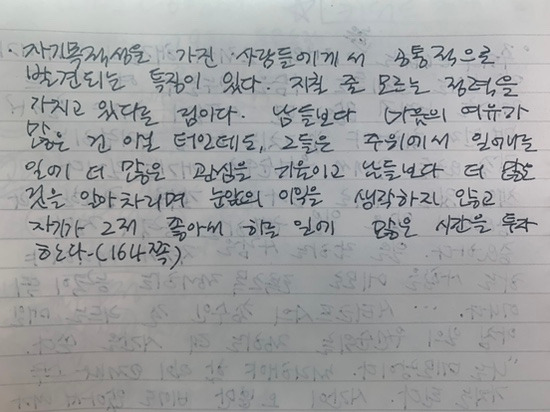 · 자기목적성을 가진 사람들에게서 공통적으로
발견되는 특징이 있다. 지칠 줄 모르는 정력을
가지고 있다는 점이다. 남들보다 마음의 여유가
많은 건 아닐 터인데도, 그들은 주위에서 일어나는
일에 더 많은 관심을 기울이고 남들보다 더 많은
것을 알아차리며 눈앞의 이익을 생각하지 않고
자기가 그저 좋아서 하는 일에 많은 시간을 투자
한다-(164쪽)